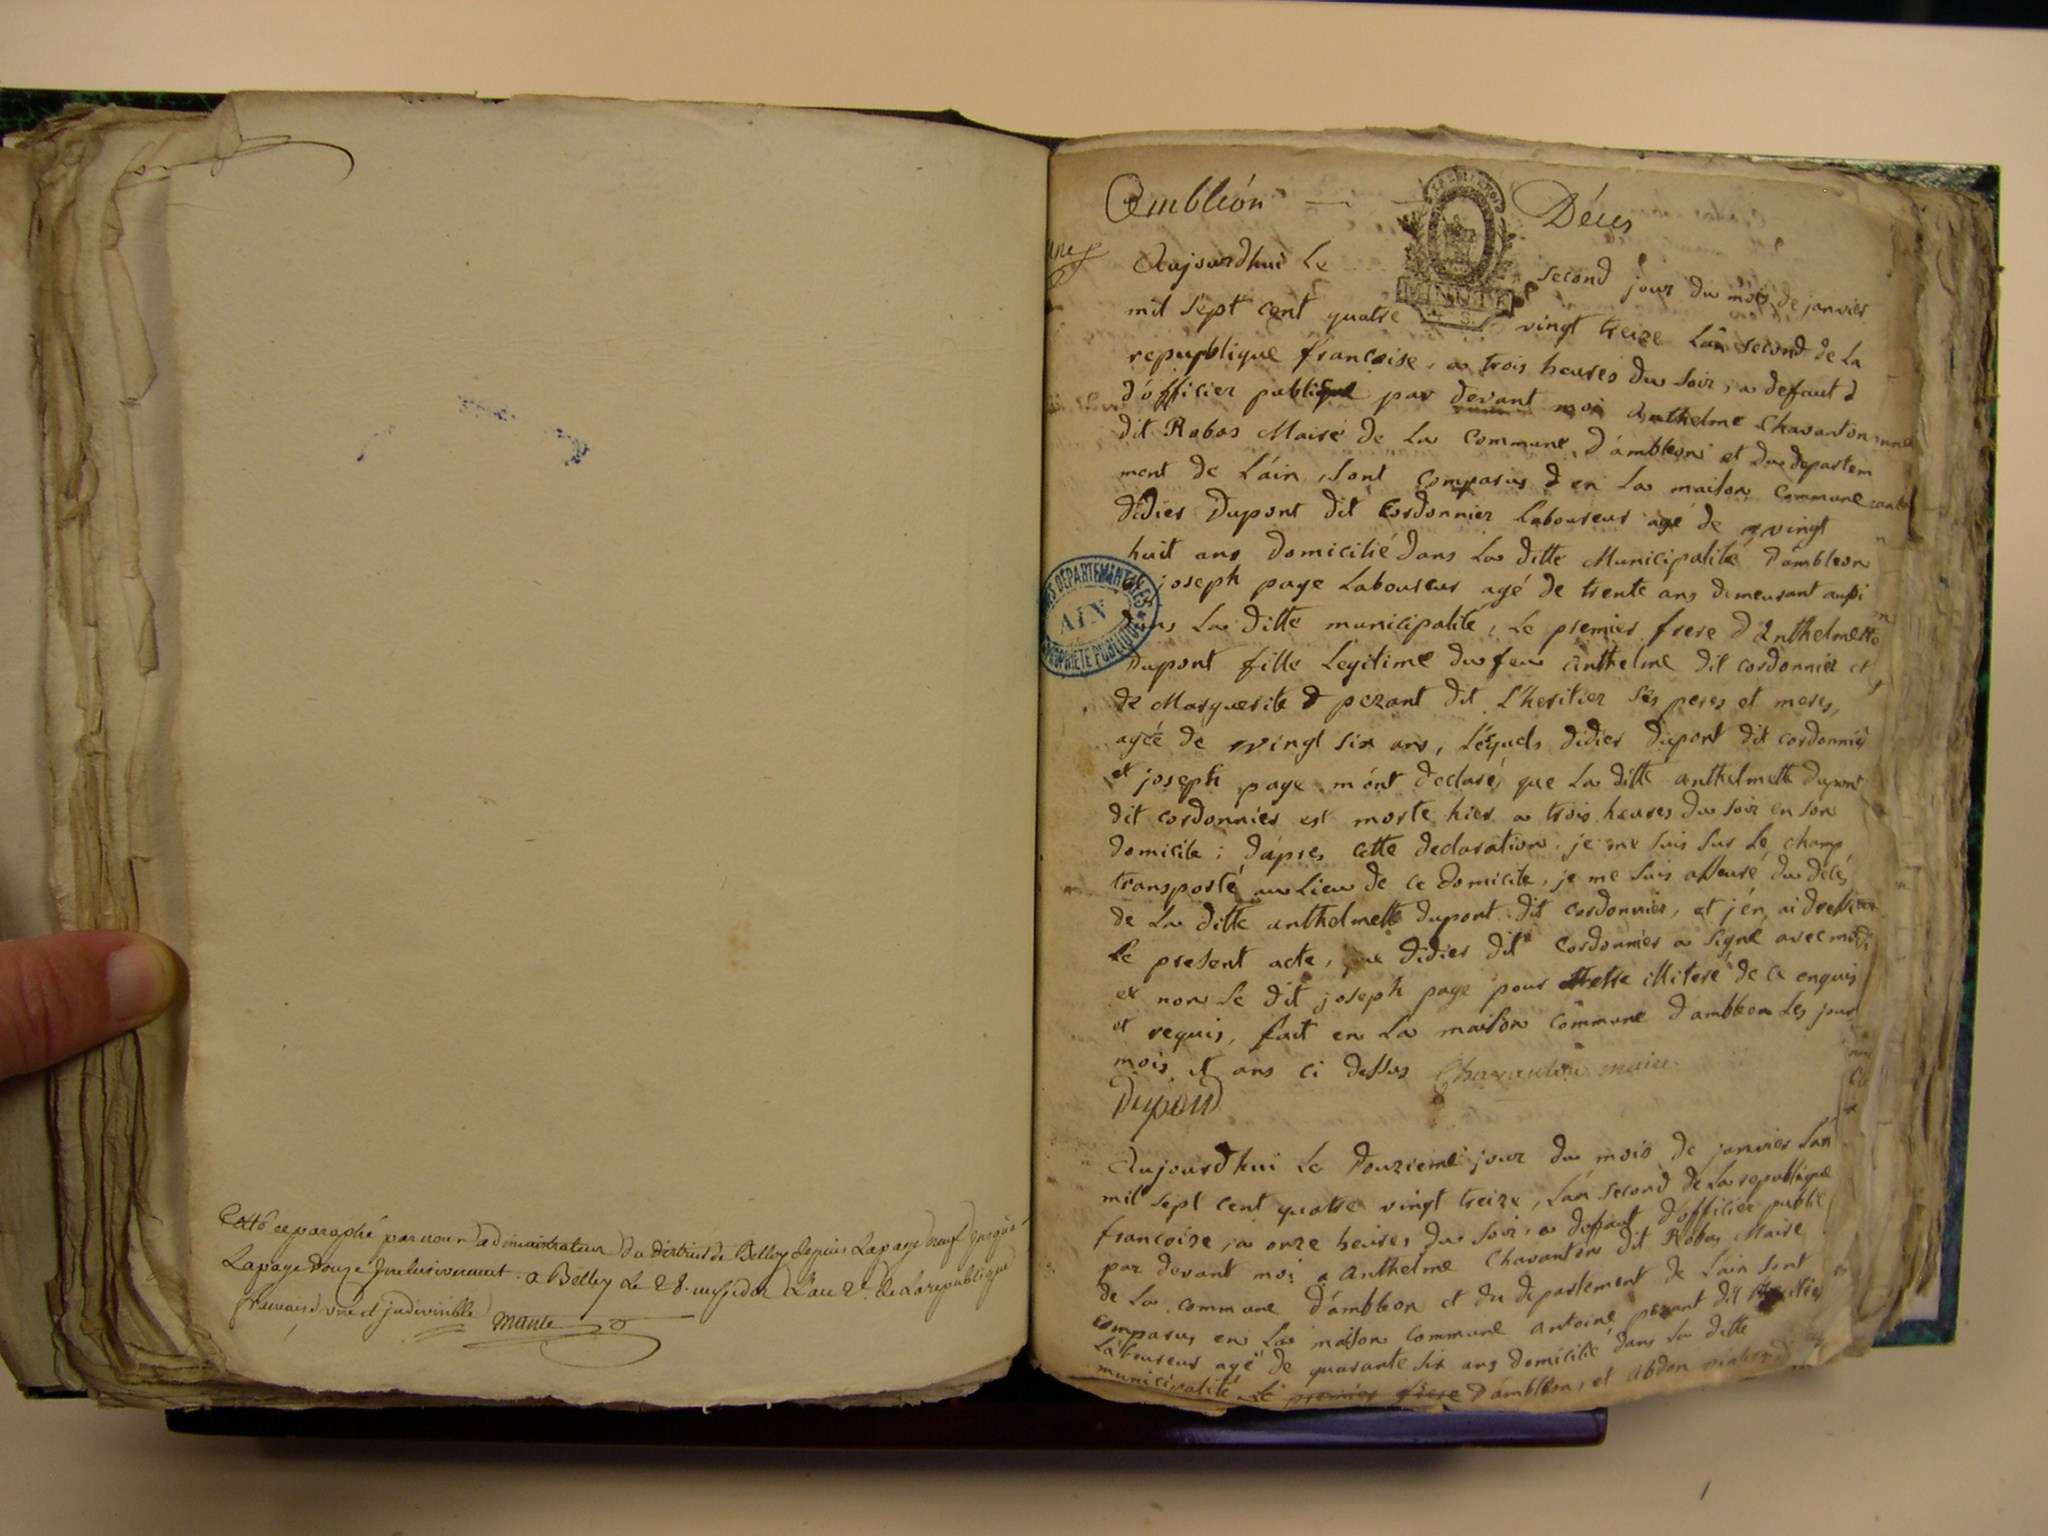 Cotté et paraphé par nous administrateur du district de Belley depuis La page neuf jusqua
La page Douze Inclusivement. a Belley Le 28. messidor L'an 2e. de La republique
francaise, une et indivisible
Ambléon
Déces
Aujourdhui Le second jour du mois de janvier
mil sept cent quatre vingt treize Lân second de La
republique francoise, a trois heures du soir, a defaut d
d'officier publique par devant moi Anthelme Chavanton
dit Robas Maire de La Commune d'ambleon et du departem
ment de L'ain, sont comparus d en La maison Commune
didier Dupont dit Cordonnier Laboureur agé de vingt
huit ans domicilié dans La ditte Municipalité D'ambleon
joseph page Laboureur agé de trente ans demeurant aussi
dans La ditte municipalité, Le premier frere d'Anthelmette
Dupont fille Legitime du feu Anthelme dit cordonnier et
de Marguerite pezant dit L'heritier ses peres et meres,
agée de vingt six ans, Lesquels didier dupont dit cordonnier
et joseph page m'ont declaré, que La ditte anthelmette dupont
dit cordonnier est morte hier a trois heures du soir en son
domicile ; d'apres cette declaration je me suis sur Le champ
transporté au Lieu de ce domicile, je me suis asseuré du décés
de La ditte anthelmette dupont dit cordonnier, et j'en ai dressé
Le present acte, que didier dit cordonnier a signé avec moi
et non Le dit joseph page pour être illiteré de ce enquis
et requis, fait en La maison commune d'ambleon Les jour
mois et ans ci dessus Chavanton maire
Dupond
Aujourdhui Le Douzieme jour du mois de janvier L'an
mil sept cent quatre vingt treize, L'an second de La republique
francoise, a onze heures du soir, a deffaut d'officier public
par devant moi Anthelme Chavanton dit Robas Maire
de La commune D'ambleon et du departement de L'ain sont
comparus en La maison commune antoine pezant dit
Laboureur agé de quarante six ans domicilié dans La ditte
municipalité Le premier frere D'ambleon, et abdon
ARCHIVES DEPARTEMENTALES
AIN
PROPRIÉTÉ PUBLIQUE
MINUTE